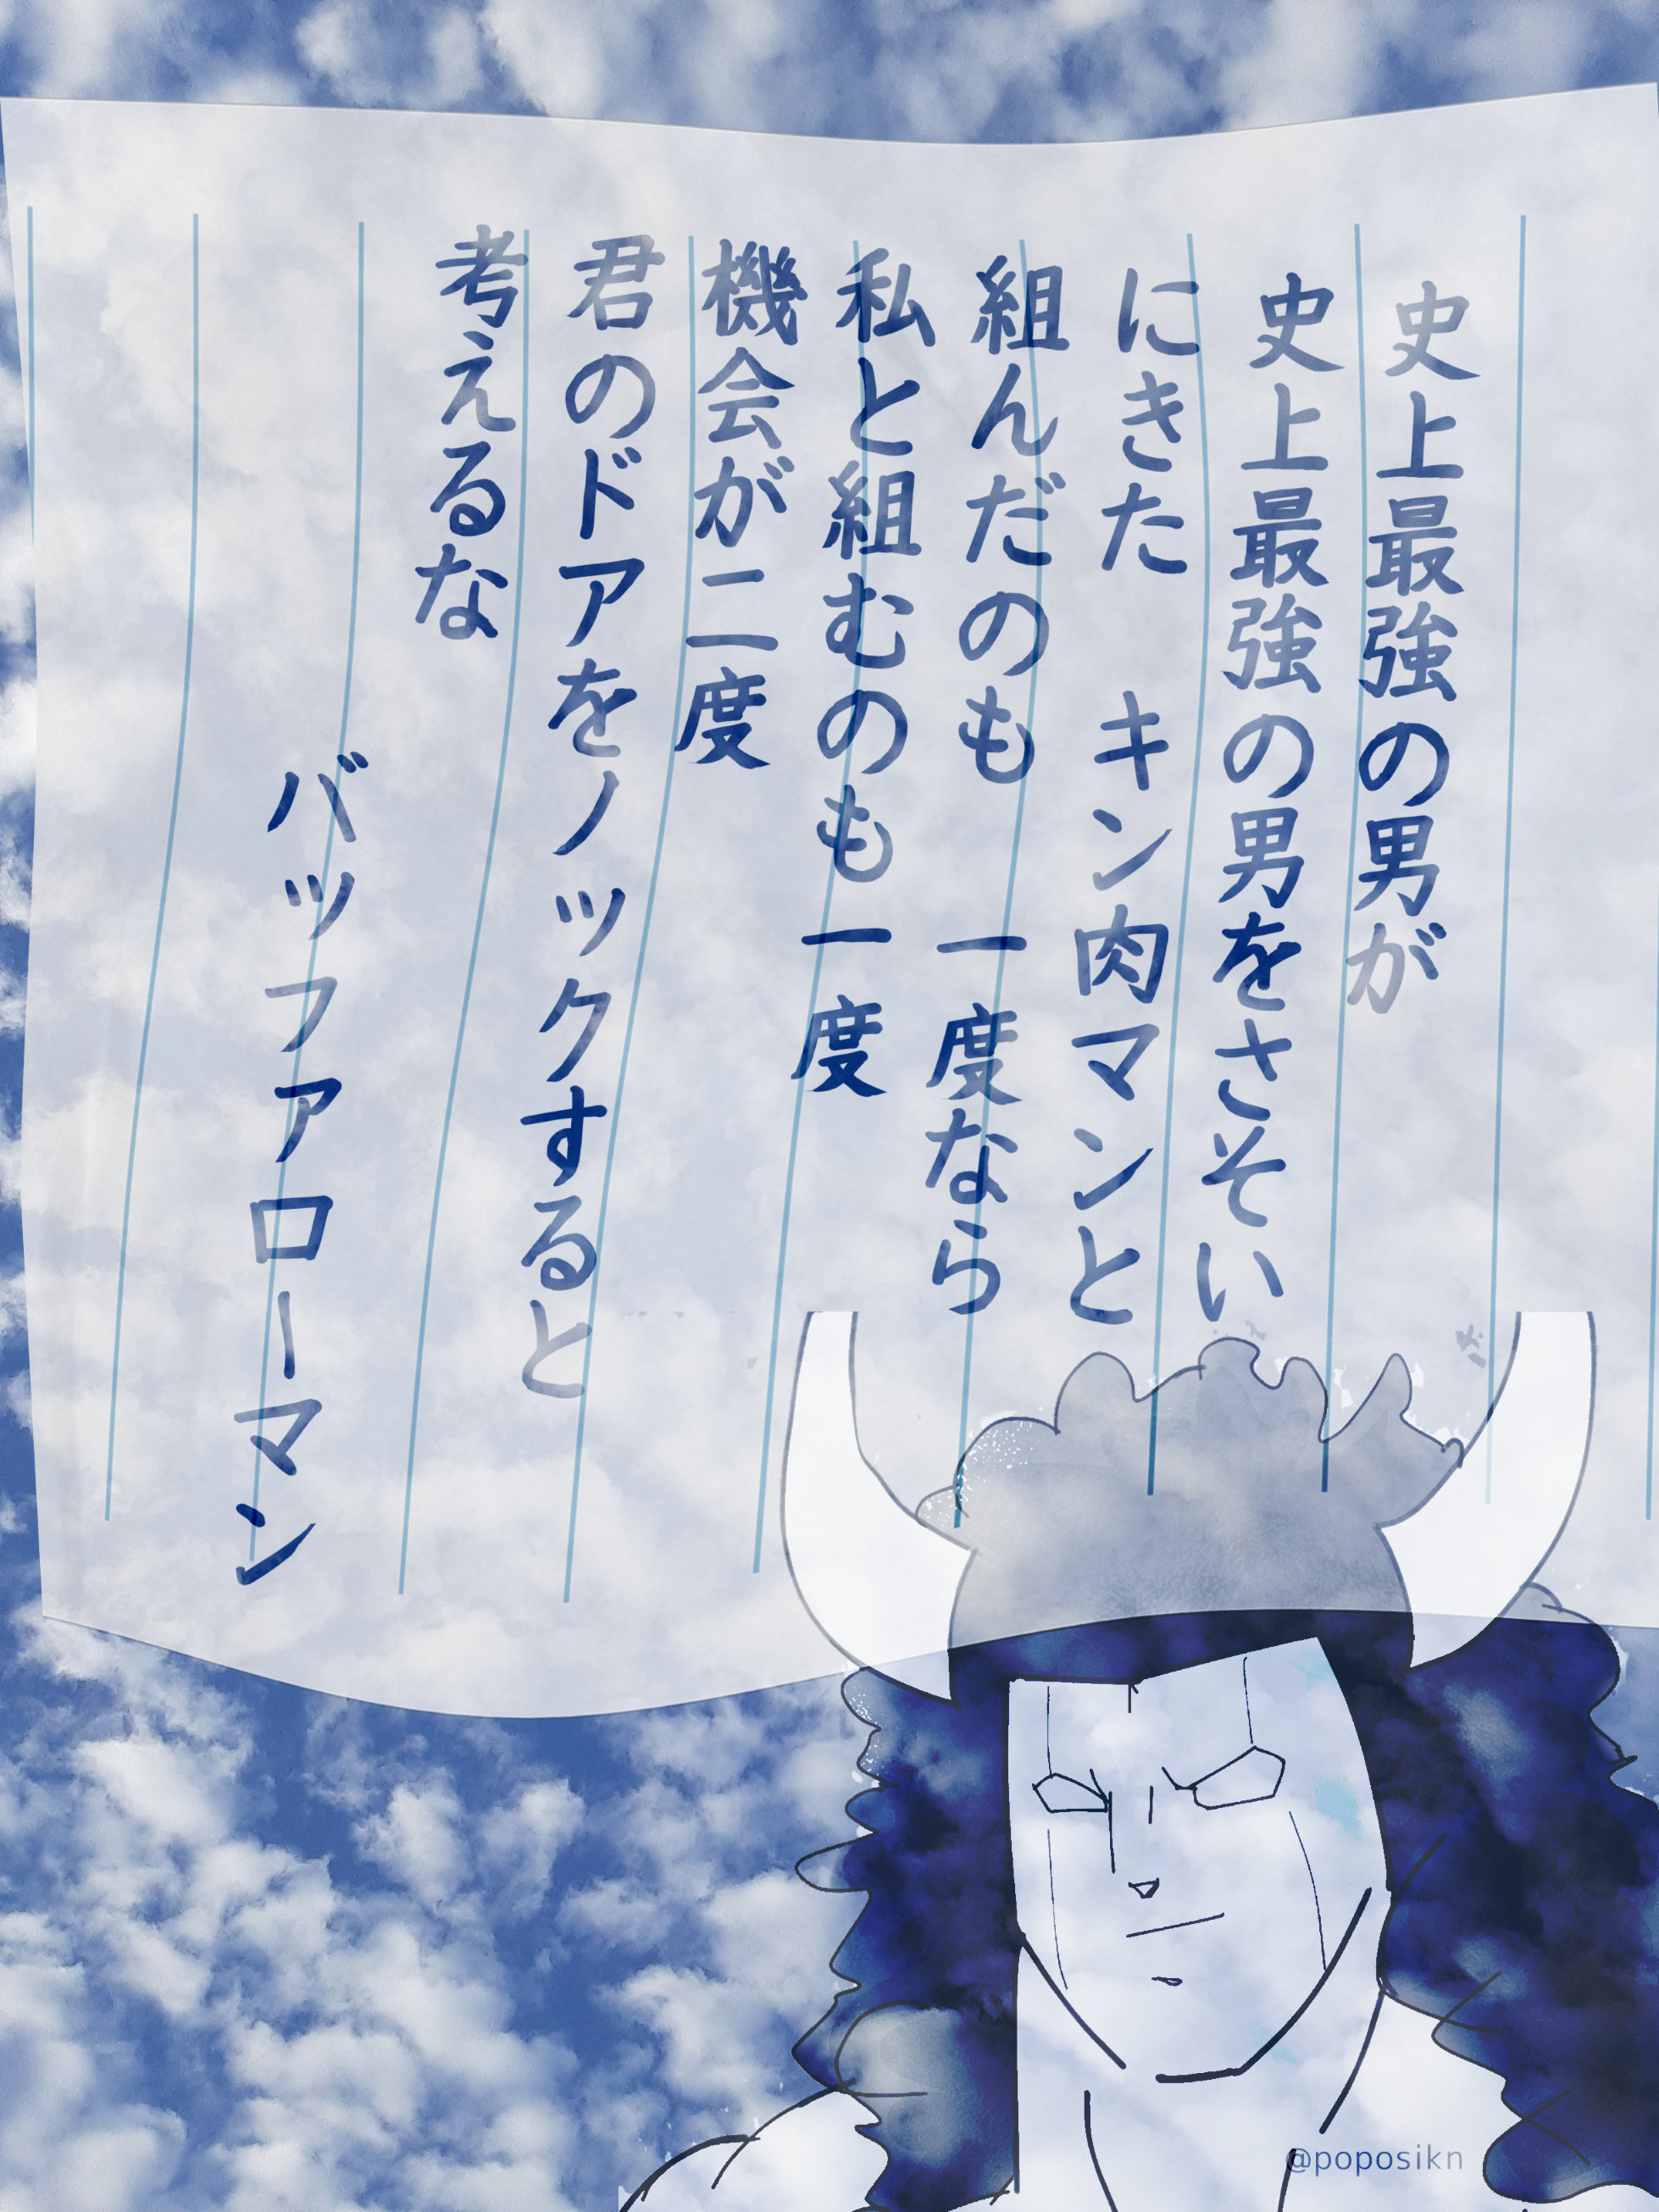 史上最強の男が
史上最強の男をさそい
にきた　キン肉マンと
組んだのも　一度なら
私と組むのも一度
機会が二度
君のドアをノックすると
考えるな
バッファローマン
@poposikn